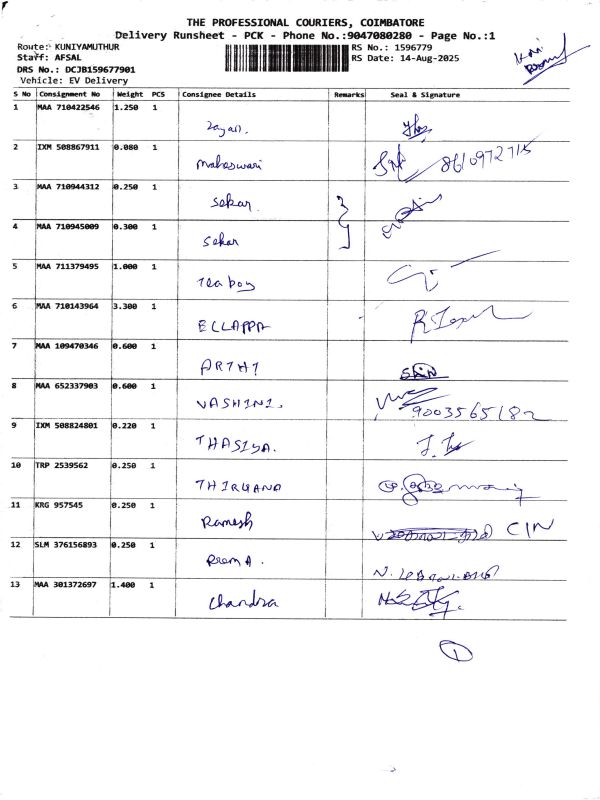 THE PROFESSIONAL COURIERS, COIMBATORE
Delivery Runsheet - PCK - Phone No.:9047080280 - Page No.:1
Route: KUNIYAMUTHUR RS No.: 1596779
Staff: AFSAL RS Date: 14-Aug-2025
DRS No.: DCJB159677901
Vehicle: EV Delivery
S No Consignment No Weight PCS Consignee Details Remarks Seal & Signature
1 MAA 710422546 1.250 1
2 IXM 508867911 0.080 1 maheswari 8610972715
3 MAA 710944312 0.250 1 Sekar.
4 MAA 710945009 0.300 1 Sekar
5 MAA 711379495 1.000 1 Tea boy
6 MAA 710143964 3.300 1 ELLAPPA
7 MAA 109470346 0.600 1 ARTHI
8 MAA 652337903 0.600 1 VASHINI. 9003565182
9 IXM 508824801 0.220 1 THASIYA.
10 TRP 2539562 0.250 1
11 KRG 957545 0.250 1 Ramesh C/N
12 SLM 376156893 0.250 1 Prem A.
13 MAA 301372697 1.400 1 Chandra
1